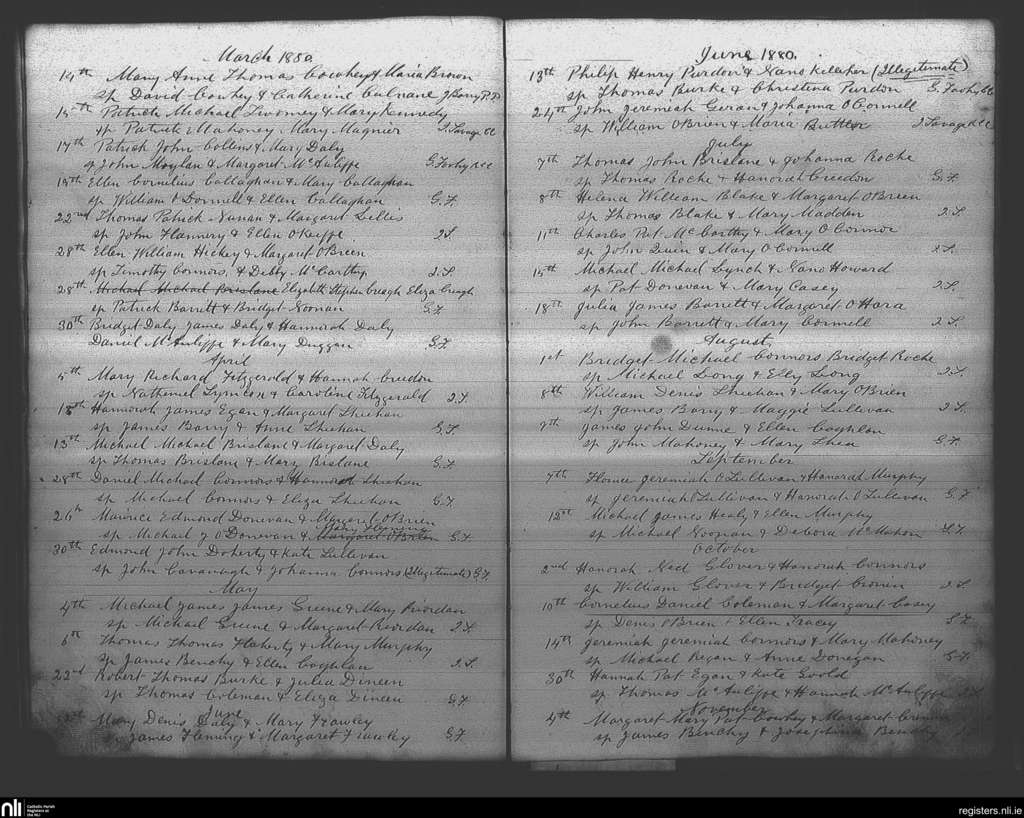 March 1880
14th Mary Anne Thomas Cowhey & Maria Brown
sp David Cowhey & Catherine Culnane J Barry P.P.
15th Patrick Michael Twomey & Mary Kennedy
sp Patrick Mahoney Mary Magnier J. Savage CC
17th Patrick John Collens & Mary Daly
sp John Moylan & Margaret McAuliffe G. Foohy RCC
19th Ellen Cornelius Callaghan & Mary Callaghan
sp William O Donnell & Ellen Callaghan G.F.
22nd Thomas Patrick Nunan & Margaret Lillis
sp John Flannery & Ellen O Keiffe J.S
28th Ellen William Hickey & Margaret O'Breen
sp Timothy Connors, & Debby McCarthy J.S.
28th Michael Michael Brislane Elizabeth Stephen Creagh Eliza Creagh
sp Patrick Barrett & Bridget Noonan G.F
30th Bridget Daly James Daly & Hannorah Daly
Daniel McAuliffe & Mary Duggan G.F.
April
5th Mary Richard Fitzgerald & Hannah Creedon
sp Natheniel & Caroline Fitzgerald J.S.
18th Hannorah James Egan & Margaret Sheehan
sp James Barry & Anne Sheehan G.F.
13th Michael Michael Brislane & Margaret Daly
sp Thomas Brislane & Mary Bislane G.F.
28th Daniel Michael Connors & Hannorah Sheehan
sp Michael Connors & Eliza Sheehan G.F.
26th Maurice Edmond Donevan & Margaret O'Brien
Mary Fleming
sp Michael J O'Donevan & Margaret O'Brien G.F.
30th Edmond John Doherty & Kate Sullivan
sp John Cavanagh & Johanna Connors (Illegitimate) G.F.
May
4th Michael James James Greene & Mary Riordan
sp Michael Greene & Margaret Riordan J.S.
6th Thomas Thomas Flaherty & Mary Murphy
sp James Benchy & Ellen Coghlan J.S.
22nd Robert Thomas Burke & Julia Dineen
sp Thomas Coleman & Eliza Dineen G.F.
June
Mary Denis Daly & Mary Frawley
sp James Fleming & Margaret Frawley G.F.
June 1880.
13th Philip Henry Purdon & Nano Kelleher (Illegetimate)
sp Thomas Burke & Christina Purdon G. Foohy CC
24th John Jeremiah Geran & Johanna O'Connell
sp William O'Brien & Maria Buttler J. Savage RCC
July
7th Thomas John Brislane & Johanna Roche
sp Thomas Roche & Hanorah Creedon G.F.
8th Helena William Blake & Margaret O'Breen
sp Thomas Blake & Mary Madden J.S.
11th Charles Pat McCarthy & Mary O'Connor
sp John Quin & Mary O Connell J.S.
15th Michael Michael Lynch & Nano Howard
sp Pat Donevan & Mary Casey J.S.
18th Julia James Barrett & Margaret O'Hara
sp John Barrett & Mary Connell J.S.
August
1st Bridget Michael Connors Bridget Roche
sp Michael Long & Elly Long J.S.
8th William Denis Sheehan & Mary O'Brien
sp James Barry & Maggie Sullivan J.S.
7th James John Dunne & Ellen Coghlan
sp John Mahoney & Mary Shea G.F.
September
7th Jeremiah O'Sullivan & Hanorah Murphy
sp Jeremiah O'Sullivan & Hanorah O'Sullivan G.F.
12th Michael James Healy & Ellen Murphy
sp Michael Noonan & Debora McMahon G.F.
October
2nd Hanorah Ned Glover & Hanorah Connors
sp William Glover & Bridget Cronin J.S
10th Cornelius Daniel Coleman & Margaret Casey
sp Denis O'Brien & Ellen Tracey
14th Jeremiah Jeremiah Connors & Mary Mahoney
sp Michael Regan & Anne Donegan G.F.
30th Hannah Pat Egan & Kate Goold
sp Thomas McAuliffe & Hannah McAuliffe
November
4th Margaret Mary Pat Cowhey & Margaret Cronin
sp James Benchy & Josephina Benchy
nli
Catholic Parish
Registers at
the NLI
registers.nli.ie